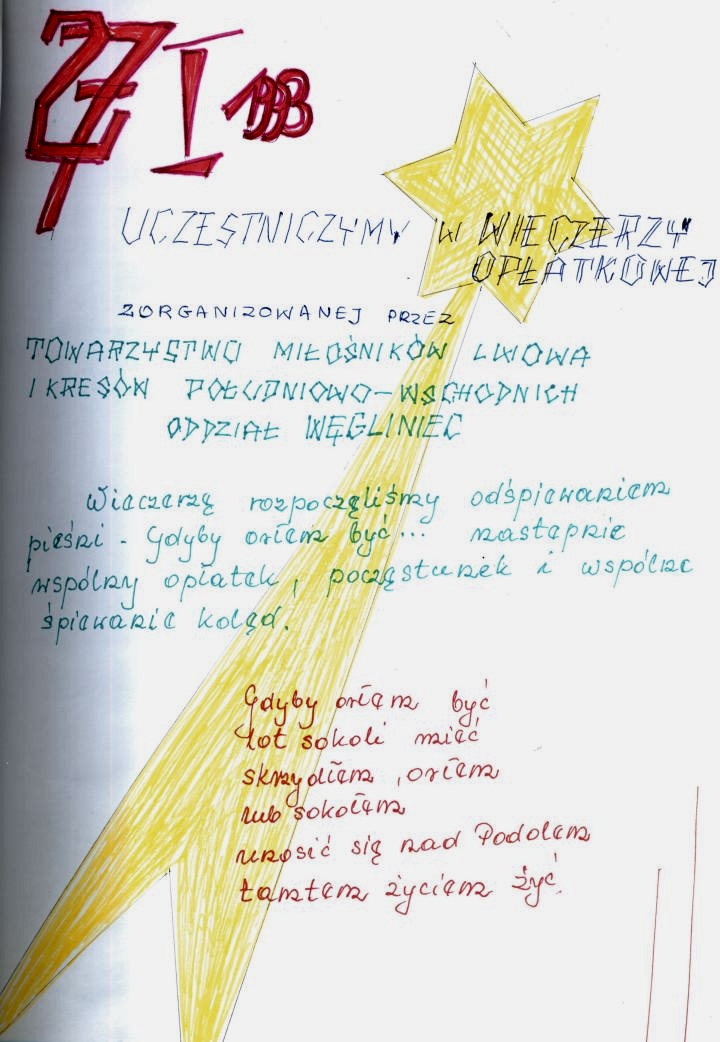 27 I 1993
UCZESTNICZYMY W WIECZERZY
OPŁATKOWEJ
ZORGANIZOWANEJ PRZEZ
TOWARZYSTWO MIŁOŚNIKÓW LWOWA
I KRESÓW POŁUDNIOWO-WSCHODNICH
ODDZIAŁ WĘGLINIEC
Wieczerzę rozpoczęliśmy odśpiewaniem
pieśni - Gdyby orłem być... następnie
wspólny opłatek, poczęstunek i wspólne
śpiewanie kolęd.
Gdyby orłem być
lot sokoli mieć
skrzydłem, orłem
lub sokołem
unosić się nad Podolem
tamtem życiem żyć.